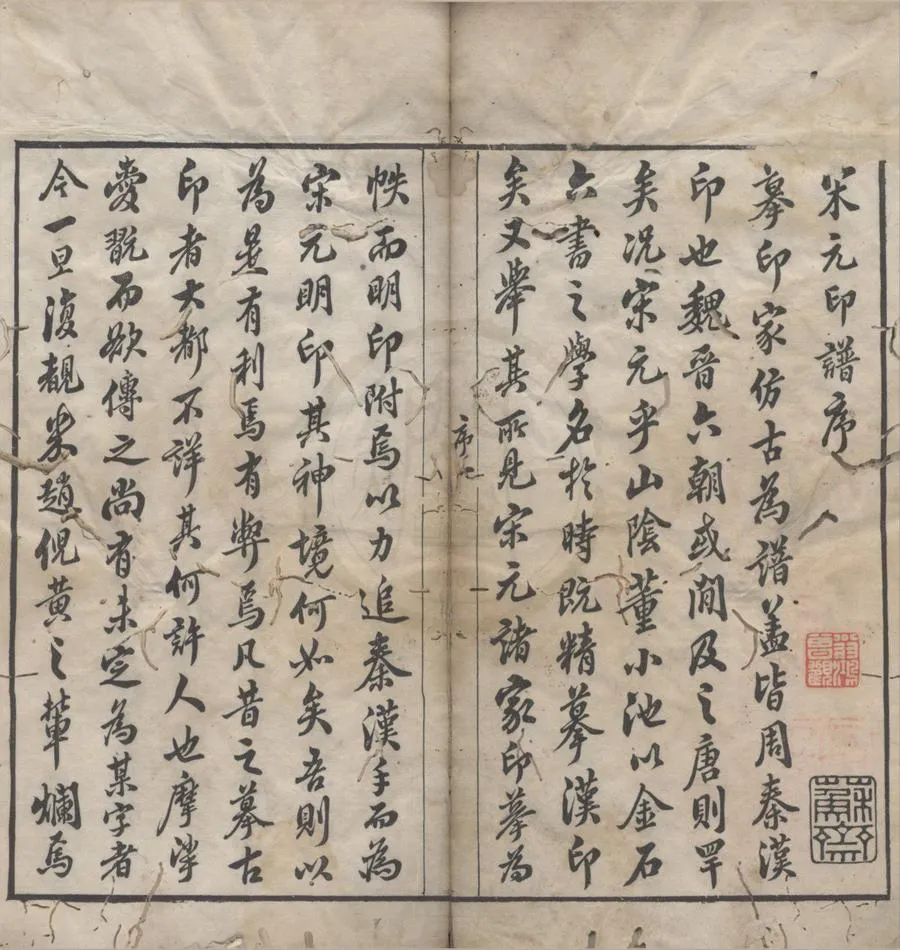 宋元印譜序
摹印家仿古為譜蓋皆周秦漢
印也魏晉六朝或間及之唐則罕
矣況宋元乎山陰董小池以金石
六書之學名於時既精摹漢印
矣又舉其所見宋元諸家印摹為
序一
帙而明印附焉以力追秦漢手而為
宋元明印其神境何如矣吾則以
為是有利焉有弊焉凡昔之摹古
印者大都不詳其何許人也摩挲
愛翫而欲傳之尚有未定為某字者
今一旦復覩米趙倪黃之輩爛焉
蘇齋